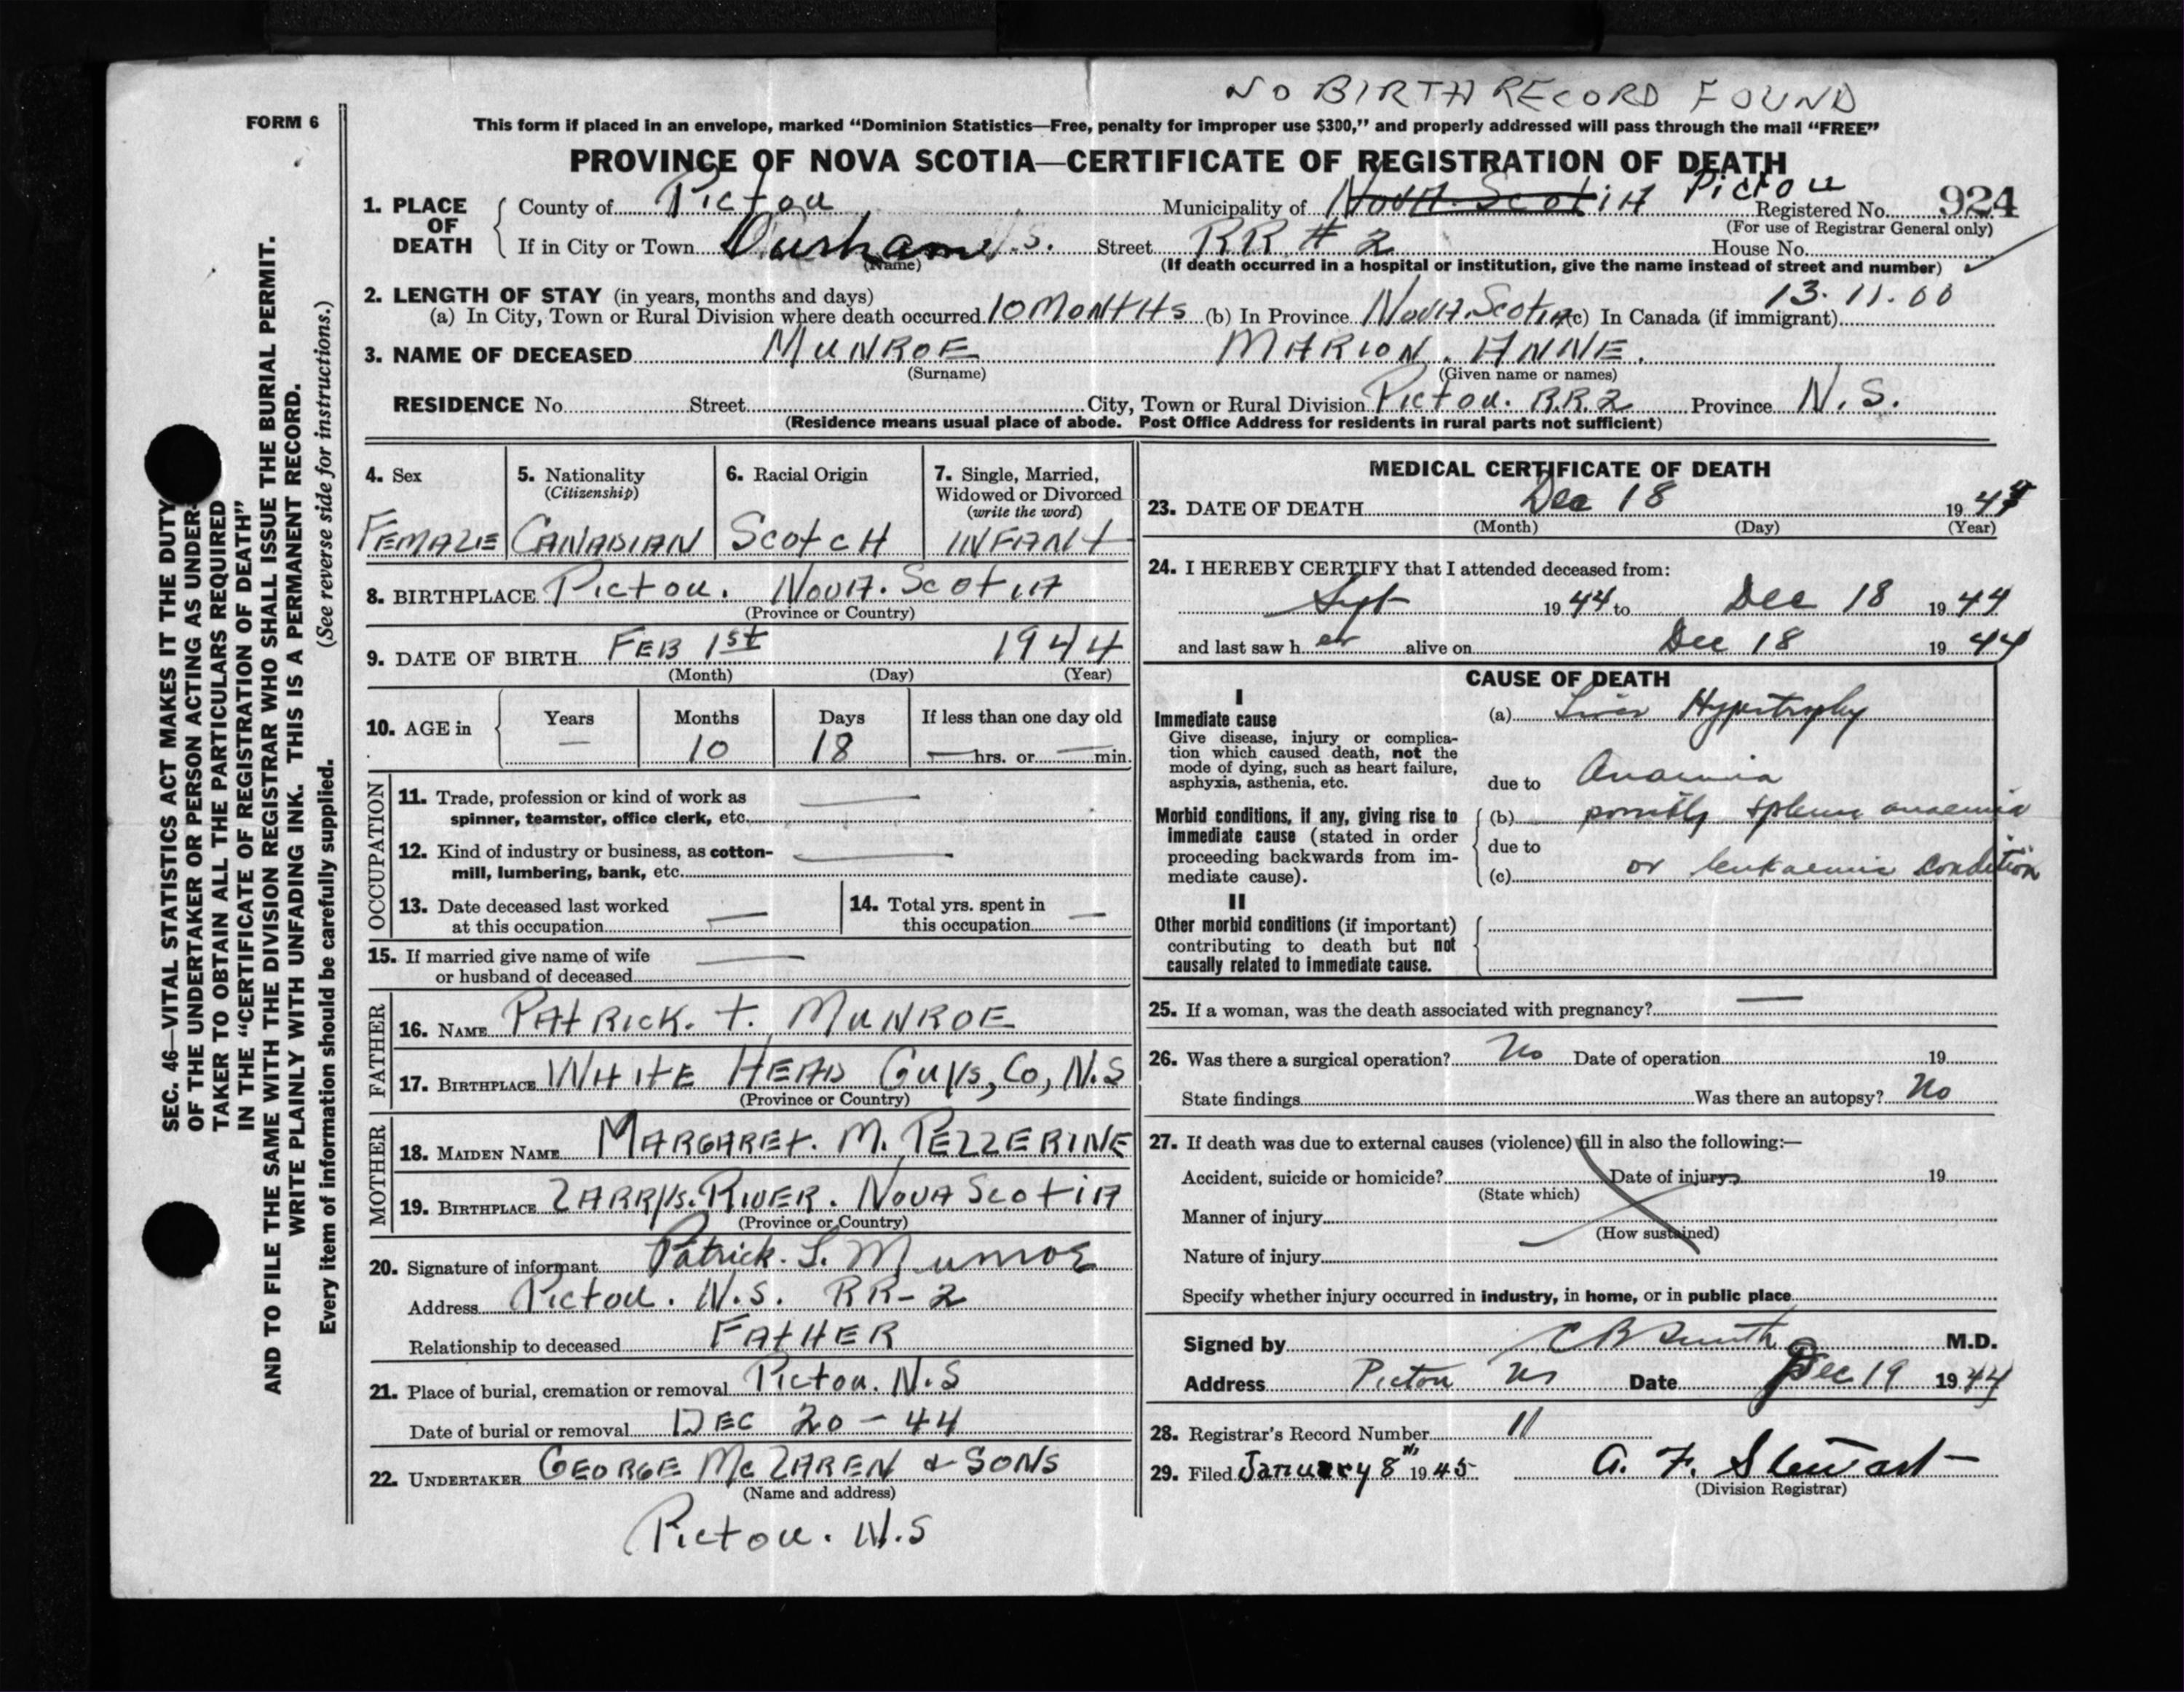 NO BIRTH RECORD FOUND
FORM 6
This form if placed in an envelope, marked “Dominion Statistics—Free, penalty for improper use $300,” and properly addressed will pass through the mail “FREE”
PROVINCE OF NOVA SCOTIA—CERTIFICATE OF REGISTRATION OF DEATH
1. PLACE OF DEATH
County of Pictou Municipality of Nova Scotia Pictou Registered No. 924
(For use of Registrar General only)
If in City or Town Durham N.S. Street RR # 2 House No.
(Name) (If death occurred in a hospital or institution, give the name instead of street and number)
2. LENGTH OF STAY (in years, months and days) 13.11.00
(a) In City, Town or Rural Division where death occurred 10 Months (b) In Province Nova Scotia (c) In Canada (if immigrant)
3. NAME OF DECEASED MUNROE MARION. ANNE.
(Surname) (Given name or names)
RESIDENCE No. Street City, Town or Rural Division Pictou. R.R.2 Province N.S.
(Residence means usual place of abode. Post Office Address for residents in rural parts not sufficient)
4. Sex FEMALE
5. Nationality (Citizenship) CANADIAN
6. Racial Origin SCOTCH
7. Single, Married, Widowed or Divorced (write the word) INFANT
8. BIRTHPLACE Pictou. Nova. Scotia
(Province or Country)
9. DATE OF BIRTH FEB 1st 1944
(Month) (Day) (Year)
10. AGE in Years — Months 10 Days 18 If less than one day old — hrs. or — min.
OCCUPATION
11. Trade, profession or kind of work as spinner, teamster, office clerk, etc. —
12. Kind of industry or business, as cotton-mill, lumbering, bank, etc. —
13. Date deceased last worked at this occupation —
14. Total yrs. spent in this occupation —
15. If married give name of wife or husband of deceased —
FATHER
16. NAME PATRICK. T. MUNROE
17. BIRTHPLACE WHITE HEAD Guys, Co, N.S
(Province or Country)
MOTHER
18. MAIDEN NAME MARGARET. M. PELLERINE
19. BIRTHPLACE LARRYS. RIVER. NOVA SCOTIA
(Province or Country)
20. Signature of informant Patrick. T. Munroe
Address Pictou. N.S. RR-2
Relationship to deceased FATHER
21. Place of burial, cremation or removal Pictou. N.S
Date of burial or removal DEC 20 - 44
22. UNDERTAKER GEORGE McLAREN & SONS
(Name and address)
Pictou. N.S
MEDICAL CERTIFICATE OF DEATH
23. DATE OF DEATH Dec 18 1944
(Month) (Day) (Year)
24. I HEREBY CERTIFY that I attended deceased from:
Sept 1944 to Dec 18 1944
and last saw her alive on Dec 18 1944
CAUSE OF DEATH
I
Immediate cause
Give disease, injury or complication which caused death, not the mode of dying, such as heart failure, asphyxia, asthenia, etc.
(a) Liver Hypertrophy
due to Anaemia
Morbid conditions, if any, giving rise to immediate cause (stated in order proceeding backwards from immediate cause).
(b) possibly splenic anaemia
due to
(c) or leukaemic condition
II
Other morbid conditions (if important) contributing to death but not causally related to immediate cause.
25. If a woman, was the death associated with pregnancy? —
26. Was there a surgical operation? No Date of operation 19
State findings Was there an autopsy? No
27. If death was due to external causes (violence) fill in also the following:—
Accident, suicide or homicide? Date of injury 19
(State which)
Manner of injury
(How sustained)
Nature of injury
Specify whether injury occurred in industry, in home, or in public place
Signed by C B Smith M.D.
Address Pictou NS Date Dec 19 1944
28. Registrar's Record Number 11
29. Filed January 8 1945 A. F. Stewart
(Division Registrar)
SEC. 46—VITAL STATISTICS ACT MAKES IT THE DUTY
OF THE UNDERTAKER OR PERSON ACTING AS UNDER-
TAKER TO OBTAIN ALL THE PARTICULARS REQUIRED
IN THE “CERTIFICATE OF REGISTRATION OF DEATH”
AND TO FILE THE SAME WITH THE DIVISION REGISTRAR WHO SHALL ISSUE THE BURIAL PERMIT.
WRITE PLAINLY WITH UNFADING INK. THIS IS A PERMANENT RECORD.
Every item of information should be carefully supplied. (See reverse side for instructions.)